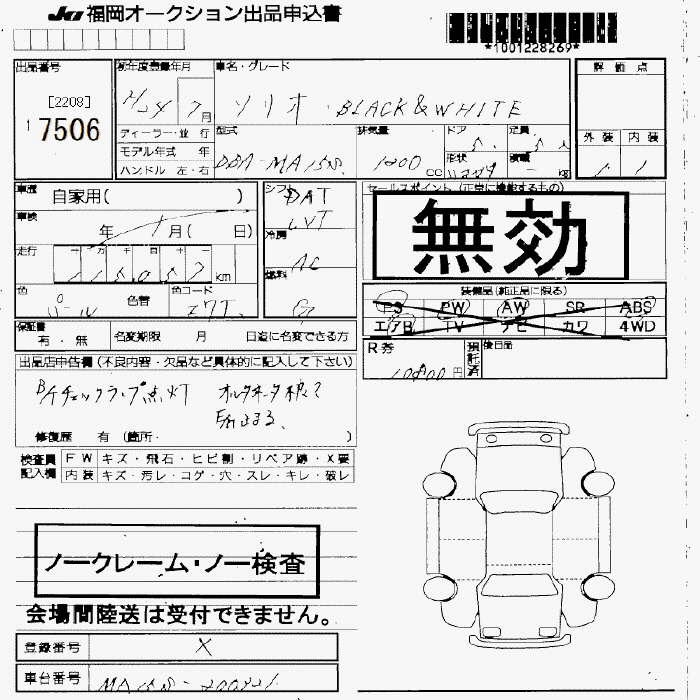 JU 福岡オークション出品申込書
*1001228269*
出品番号
[2208]
1 7506
初年度登録年月
H24 7月
ディーラー・並 行
モデル年式 年
ハンドル 左・右
車名・グレード
ソリオ・BLACK&WHITE
型式
DBA-MA15S
排気量
1200 CC
ドア
5
定員
5
形状
積載
kg
評 価 点
外 装 内 装
車歴
自家用( )
車検
年 月( 日)
走行
十 万 千 百 十 一
km
色
パール
色替
色コード
Z7T
シフト
DAT
CVT
冷房
AC
燃料
G
セールスポイント (正常に機能するもの)
無効
装備品(純正品に限る)
PS PW AW SR ABS
エアB TV ナビ カワ 4WD
R券
10800円
預託済
後日品
保証書
有 ・ 無
名変期限 月 日迄に名変できる方
出品店申告欄 (不良内容・欠品など具体的に記入して下さい)
チェックランプ点灯
修復歴 有 (箇所・ )
検査員記入欄
F W キズ・飛石・ヒビ割・リペア跡・X要
内 装 キズ・汚レ・コゲ・穴・スレ・キレ・破レ
ノークレーム・ノー検査
会場間陸送は受付できません。
登録番号
X
車台番号